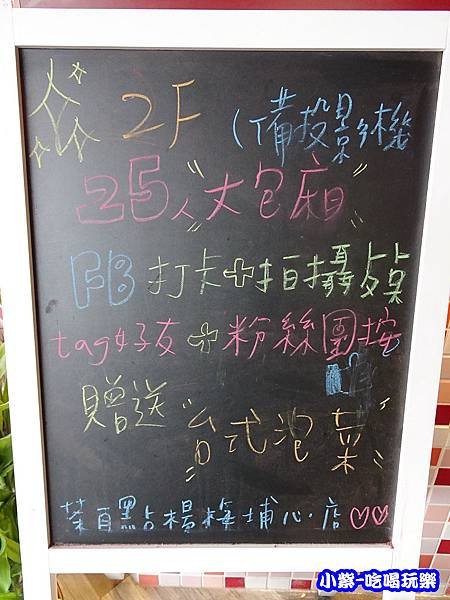 2F (備投影機
25人"大包廂"
FB 打卡+拍攝餐點
tag好友+粉絲團按
贈送"台式泡菜"
茶自點楊梅埔心店♡♡
小紫~吃喝玩樂